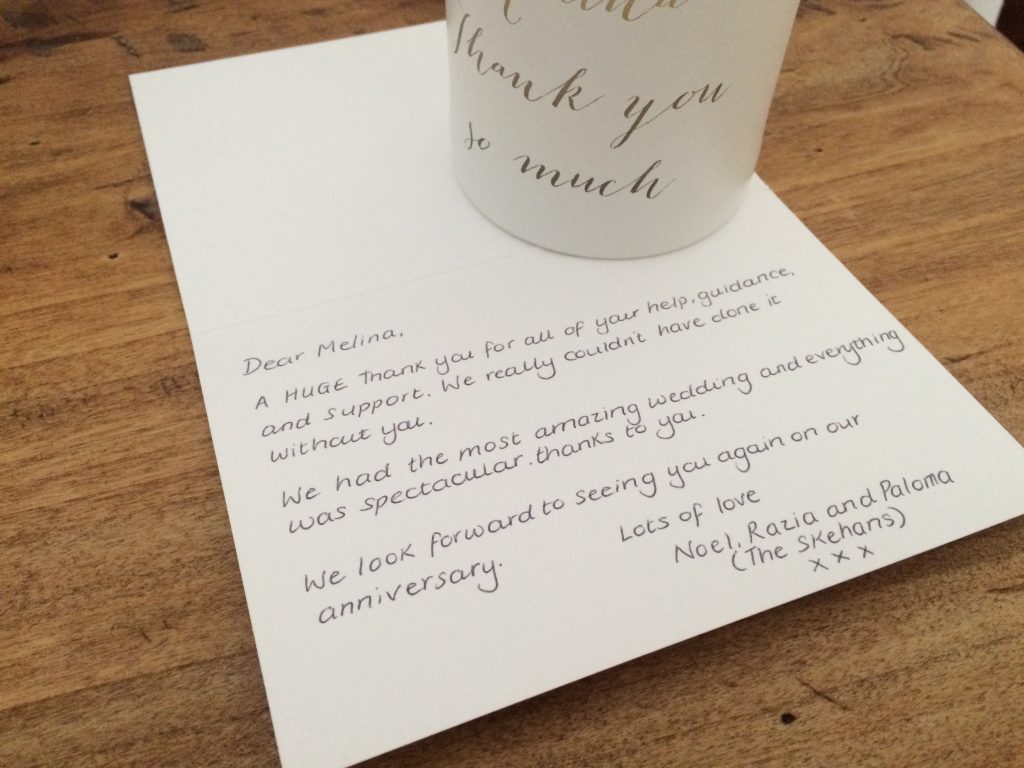 Thank you
so much
Dear Melina,
A HUGE Thank you for all of your help, guidance,
and support. We really couldn't have done it
without you.
We had the most amazing wedding and everything
was spectacular. thanks to you.
We look forward to seeing you again on our
anniversary.
Lots of love
Noel, Razia and Paloma
(The Skehans)
x x x